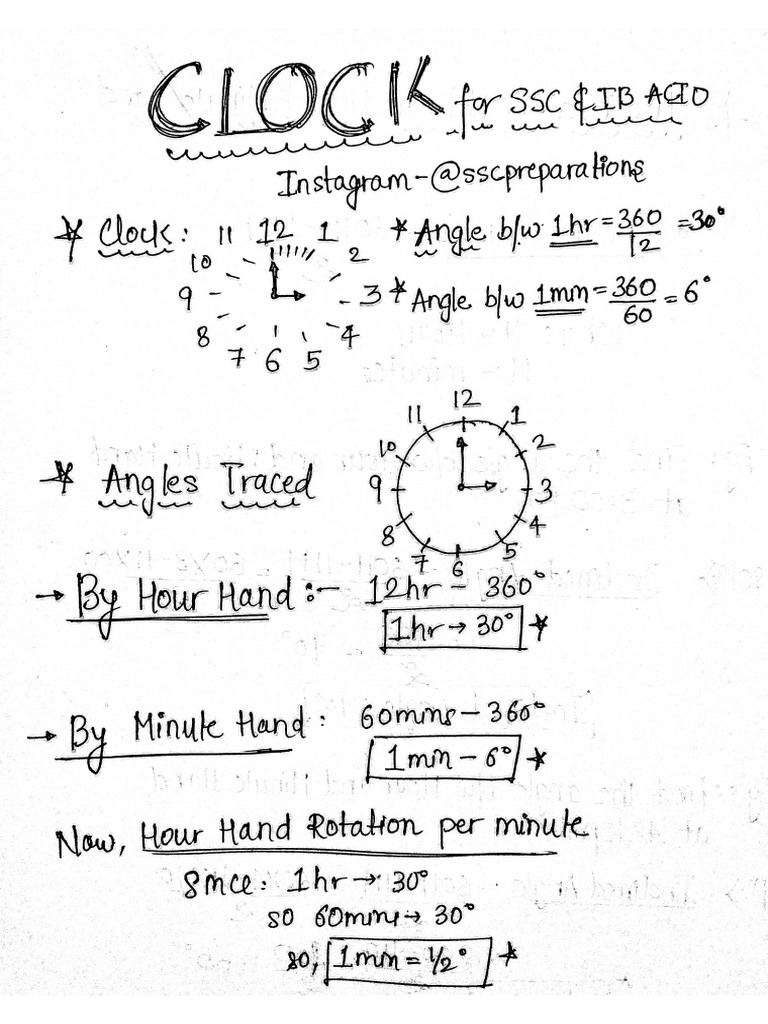 CLOCK for SSC & IB ACIO
Instagram-@sscpreparations
* Clock:
11 12 1
10 2
9 3
8 4
7 6 5
* Angle b/w 1hr = 360/12 = 30°
* Angle b/w 1min = 360/60 = 6°
12
11 1
10 2
9 3
8 4
7 6 5
* Angles Traced
→ By Hour Hand :- 12hr - 360°
1hr → 30° *
→ By Minute Hand : 60mins - 360°
1min - 6° *
Now, Hour Hand Rotation per minute
Since: 1hr → 30°
so 60mins → 30°
so, 1min = 1/2° *